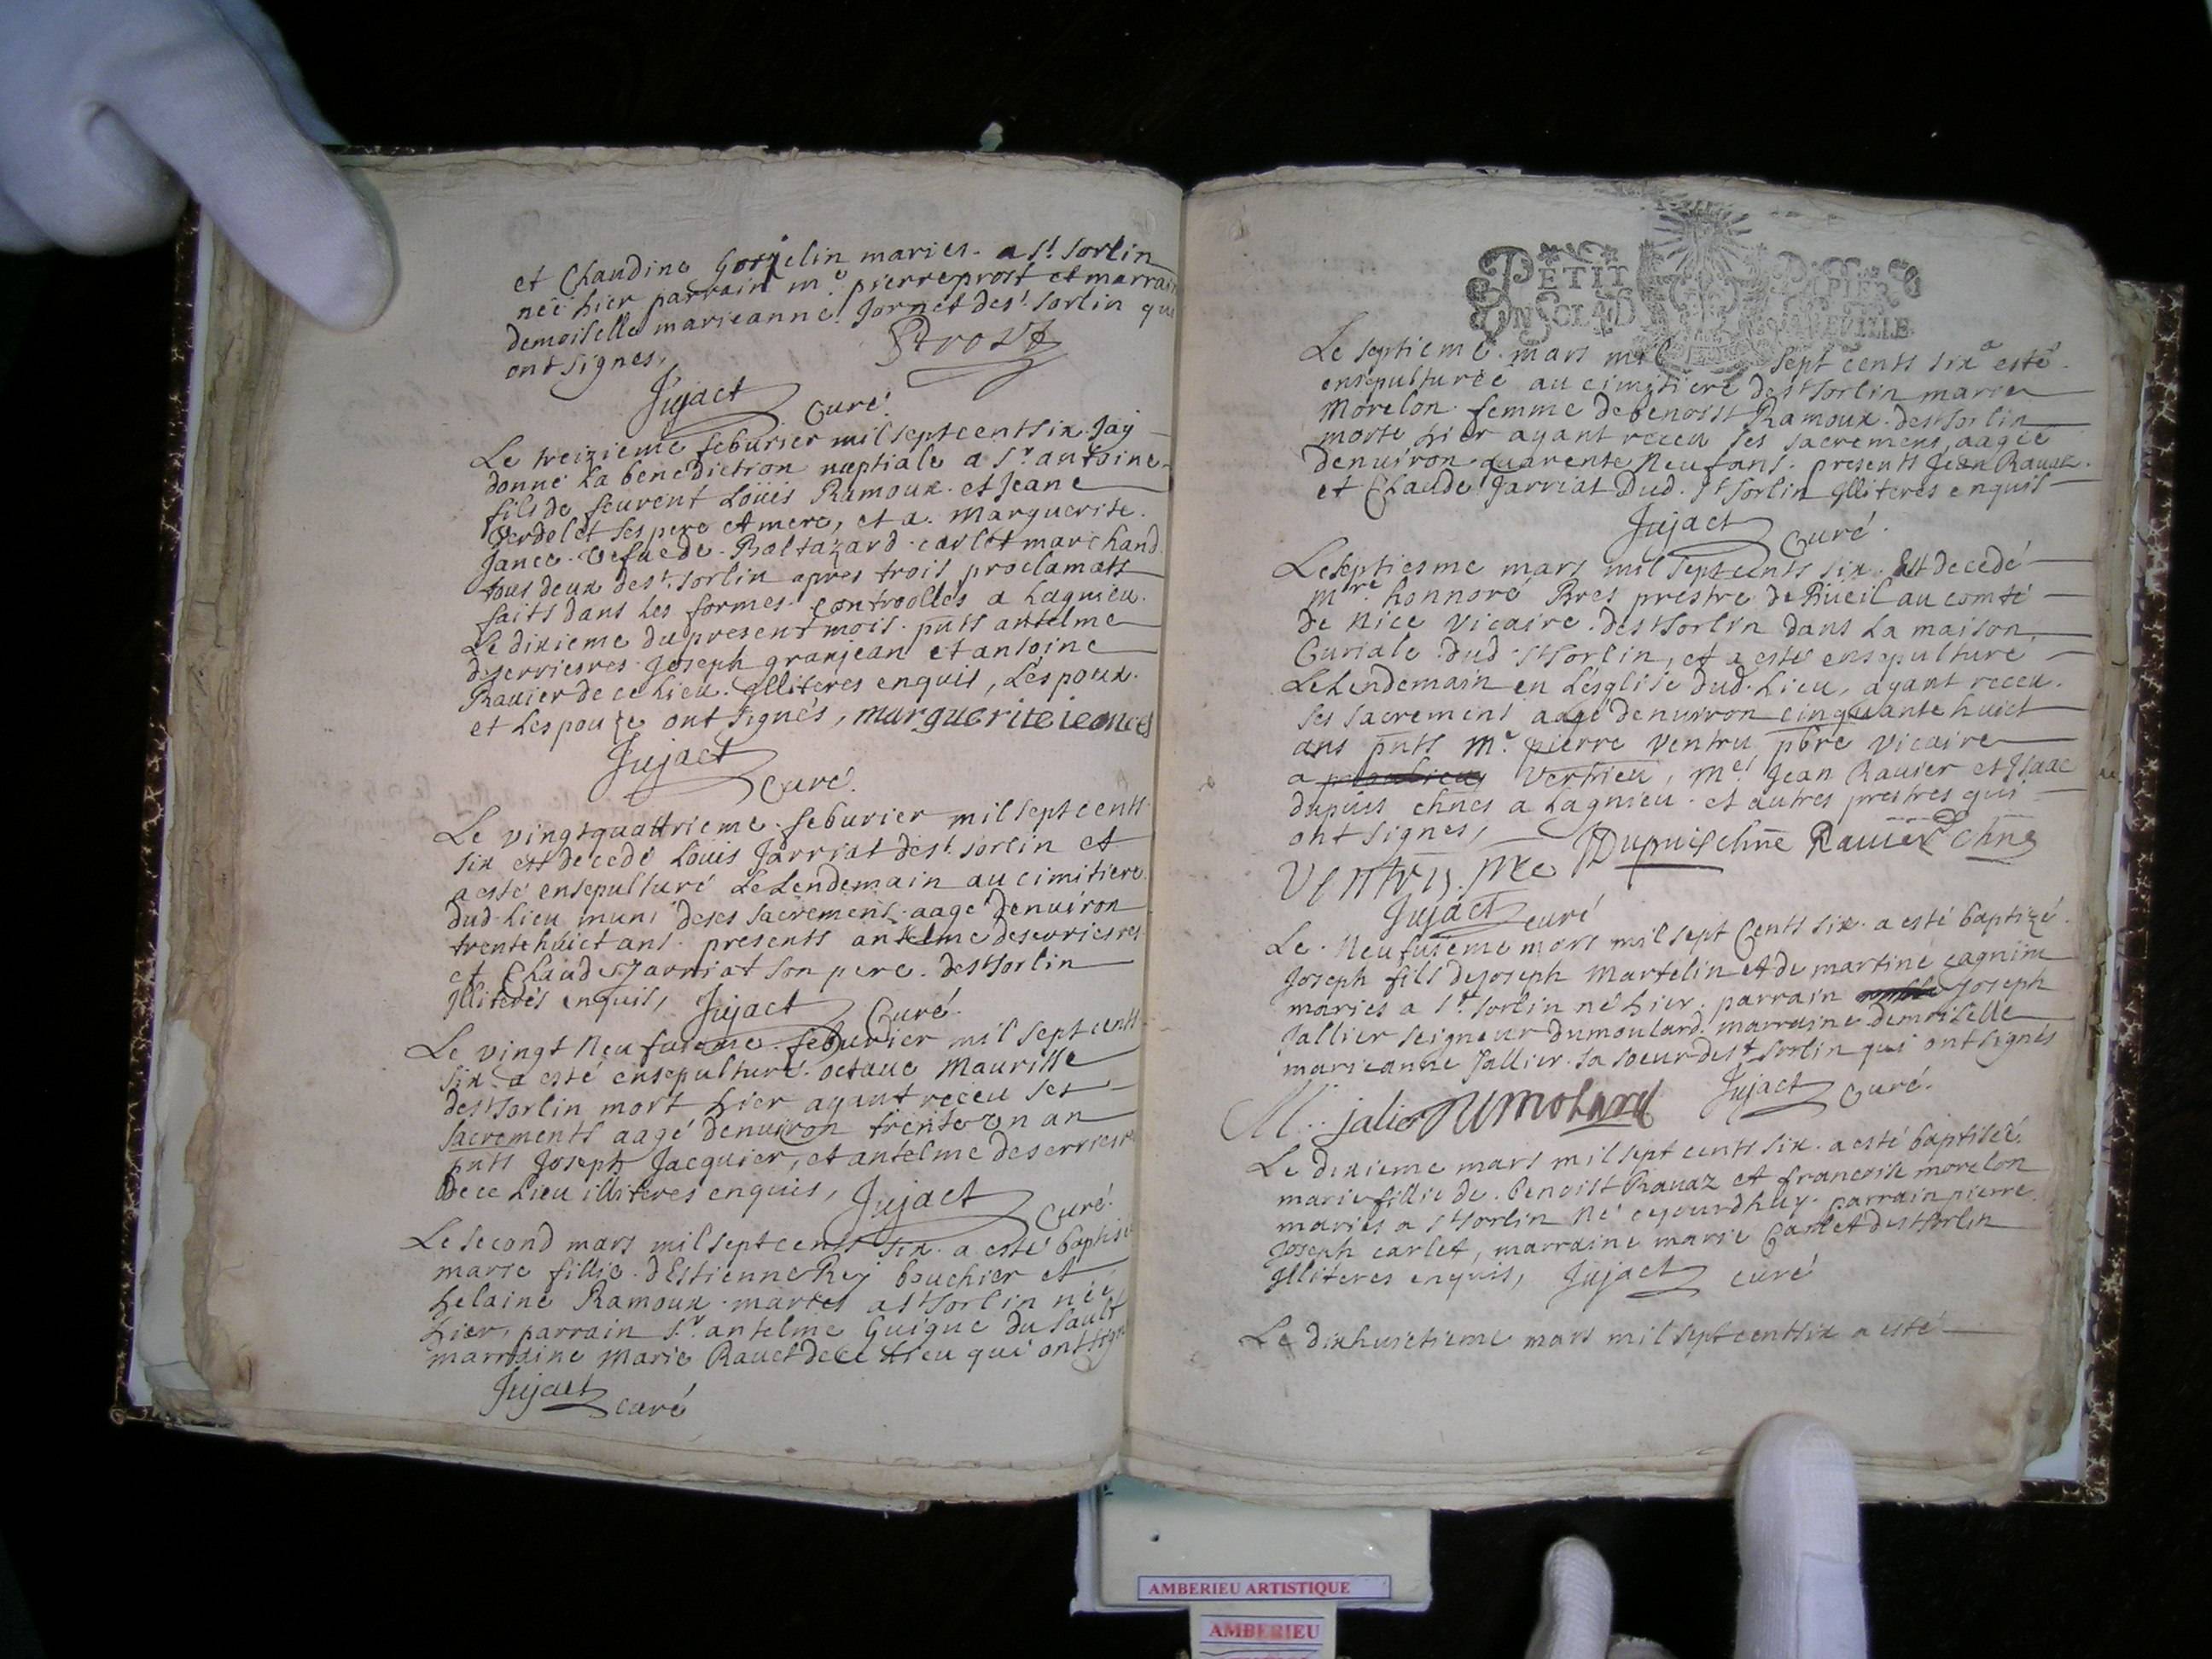 et Claudine Gorjelin maries. a St. Sorlin
née hier parrain me. pierre prost et marrain
demoiselle marieanne Jornet de st. Sorlin qui
ont signes,
Prost
Jujact curé.
Le treizieme feburier mil sept cent six Jay
donné la benediction nuptiale a Sr. antoine
fils de feurent Loüis Ramoux. et Jeane
Verdelet ses pere et mere, et a. Marguerite.
Jance. Vefue de. Baltazard. carlet marchand
tous deux de st. Sorlin apres trois proclamats
faits dans les formes. controolles a Lagnieu.
Le dixieme du present mois. pnts antelme
deserrieres. Joseph granjean et antoine
Rauier de ce Lieu. Illiteres enquis, Lespoux.
et Lespouze ont signés, marguerite ieance
Jujact
curé.
Le vingtquattrieme. feburier mil sept cents
six est decedé Loüis Jarriat de st. Sorlin et
a esté ensepulturé Le Lendemain au cimitiere
dud. Lieu muni de ses sacremens. aagé denuiron
trentehuict ans. presents antelme deserrieres
et Claude Jarriat son pere. de st Sorlin
Illiterés enquis, Jujact curé.
Le vingt neufuieme. feburier mil sept cents
six. a esté ensepulturé. octaue Maurisse
de st Sorlin mort hier ayant receu ses
sacrements aagé denuiron trente un an
pnts Joseph Jacquier, et antelme deserrieres
de ce Lieu illiteres enquis, Jujact curé.
Le second mars mil sept cents six. a esté baptisé
marie fillie. dEstienne Rey bouchier et
helaine Ramoux. maries a st Sorlin née
hier, parrain Sr. antelme Guigue du Sault
marraine Marie Rauet de ce Lieu qui ont sign
Jujact curé
PETIT PAPIER
UN SOL 4 D LA FEUILLE
Le septieme. mars mil sept cents six a esté.
ensepulturée au cimitiere de st Sorlin marie
Morelon. femme de benoist Ramoux. de st Sorlin
morte hier ayant receu ses sacremens, aagée
denuiron quarente neuf ans. presents Jean Rauaz.
et Claude Jarriat Dud. st Sorlin Illiteres enquis
Jujact curé.
Le septiesme mars mil sept cents six. Est decedé
mre. honnoré Bres prestre de Rueil au comté
de Nice Vicaire. de st Sorlin dans La maison
Curiale dud. st Sorlin, et a esté ensepulturé
Le Lendemain en Lesglise dud. Lieu, ayant receu.
ses sacremens aagé denuiron cinquante huict
ans pnts me. pierre Ventru pbre Vicaire
a Vertrieu, mes. Jean Rauier et Isaac
dupuis chnes a Lagnieu. et autres prestres qui
ont signes,
Ventru. pre Dupuis chne Rauier chne
Jujact curé
Le. Neufuieme mars mil sept Cents six. a esté baptizé.
Joseph fils de Joseph Martelin et de martine cagnin
maries a St. Sorlin né hier. parrain Joseph
Jallier seigneur dumoulard. marraine demoiselle
marieanne Jallier. sa soeur de st. Sorlin qui ont signés
M. jalier Dumolard Jujact curé.
Le dixieme mars mil sept cents six. a esté baptisée
marie fillie de. benoist Rauaz et francoise morelon
maries a st Sorlin né ceiourdhuy. parrain pierre
Joseph carlet, marraine marie Carlet de st Sorlin
Illiteres enquis, Jujact curé
Le dixhuictieme mars mil sept cent six a esté
AMBERIEU ARTISTIQUE
AMBERIEU